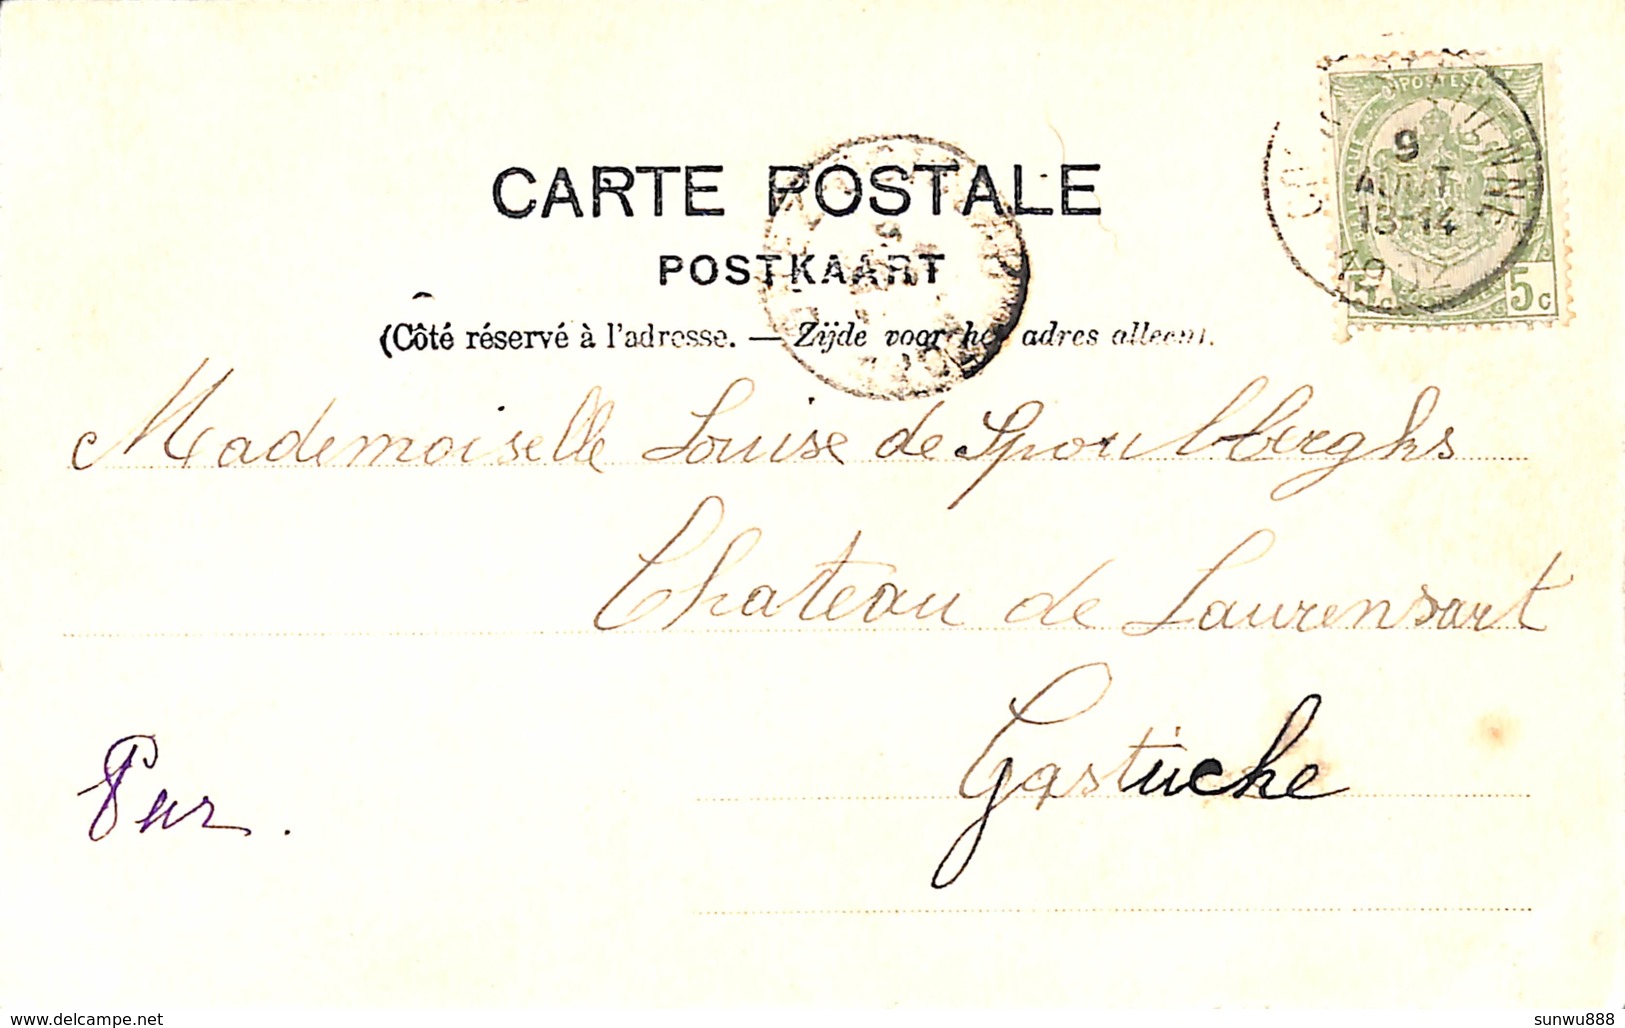 CARTE POSTALE
POSTKAART
(Côté réservé à l'adresse. — Zijde voor het adres alleen).
POSTES
9
AOUT
13-14
1902
5c 5c
Mademoiselle Louise de Spoulberghs
Chateau de Laurensart
Gastuche
www.delcampe.net
sunwu888